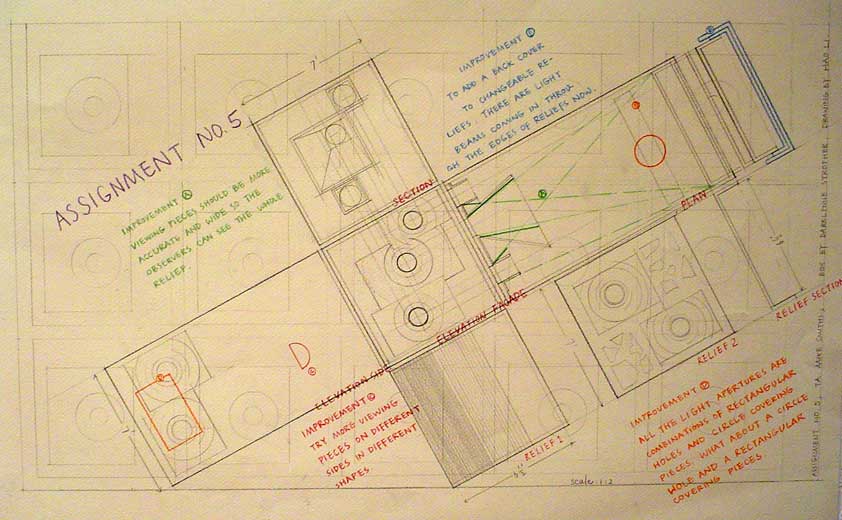 ASSIGNMENT NO.5
7'
IMPROVEMENT Ⓐ
VIEWING PIECES SHOULD BE MORE
ACCURATE AND WIDE SO THE
OBSERVERS CAN SEE THE WHOLE
RELIEF.
IMPROVEMENT
TO ADD A BACK COVER
TO CHANGEABLE RE-
LIEFS. THERE ARE LIGHT
BEAMS COMING IN THROU-
GH THE EDGES OF RELIEFS NOW.
SECTION
PLAN
ELEVATION FACADE
ELEVATION SIDE
IMPROVEMENT Ⓒ
TRY MORE VIEWING
PIECES ON DIFFERENT
SIDES IN DIFFERENT
SHAPES
RELIEF 1
RELIEF 2
RELIEF SECTION
IMPROVEMENT
ALL THE LIGHT APERTURES ARE
COMBINATIONS OF RECTANGULAR
HOLES AND CIRCLE COVERING
PIECES. WHAT ABOUT A CIRCLE
HOLE AND A RECTANGULAR
COVERING PIECES.
scale 1:2
ASSIGNMENT NO.5, TA MIKE SMITH, BOX BY DARRLINNE STROTHER, DRAWING BY HAO LI